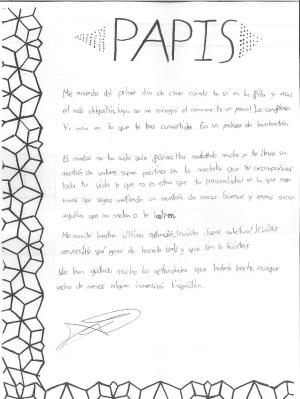 PAPIS
Me acuerdo del primer día de clase cuando te vi en la fila y eras
el más chiquitín, hoy se me encogió el corazón un poco! Lo confieso
Y mira en lo que te has convertido. En un pedazo de
El cambio no ha sido solo físico. Has madurado mucho y te llevas un
montón de valores super positivos en la mochila que te acompañarán
toda tu vida y que no es otra que tu personalidad en la que
que sigas metiendo un montón de cosas buenas y saques
aquellas que no molan o te lastren.
Me encantó vuestra última
que ganas de hacerlo bien y que bien lo hicisteis
Me han gustado mucho las actividades que habéis hecho aunque
echo de menos alguna inmersión lingüística.